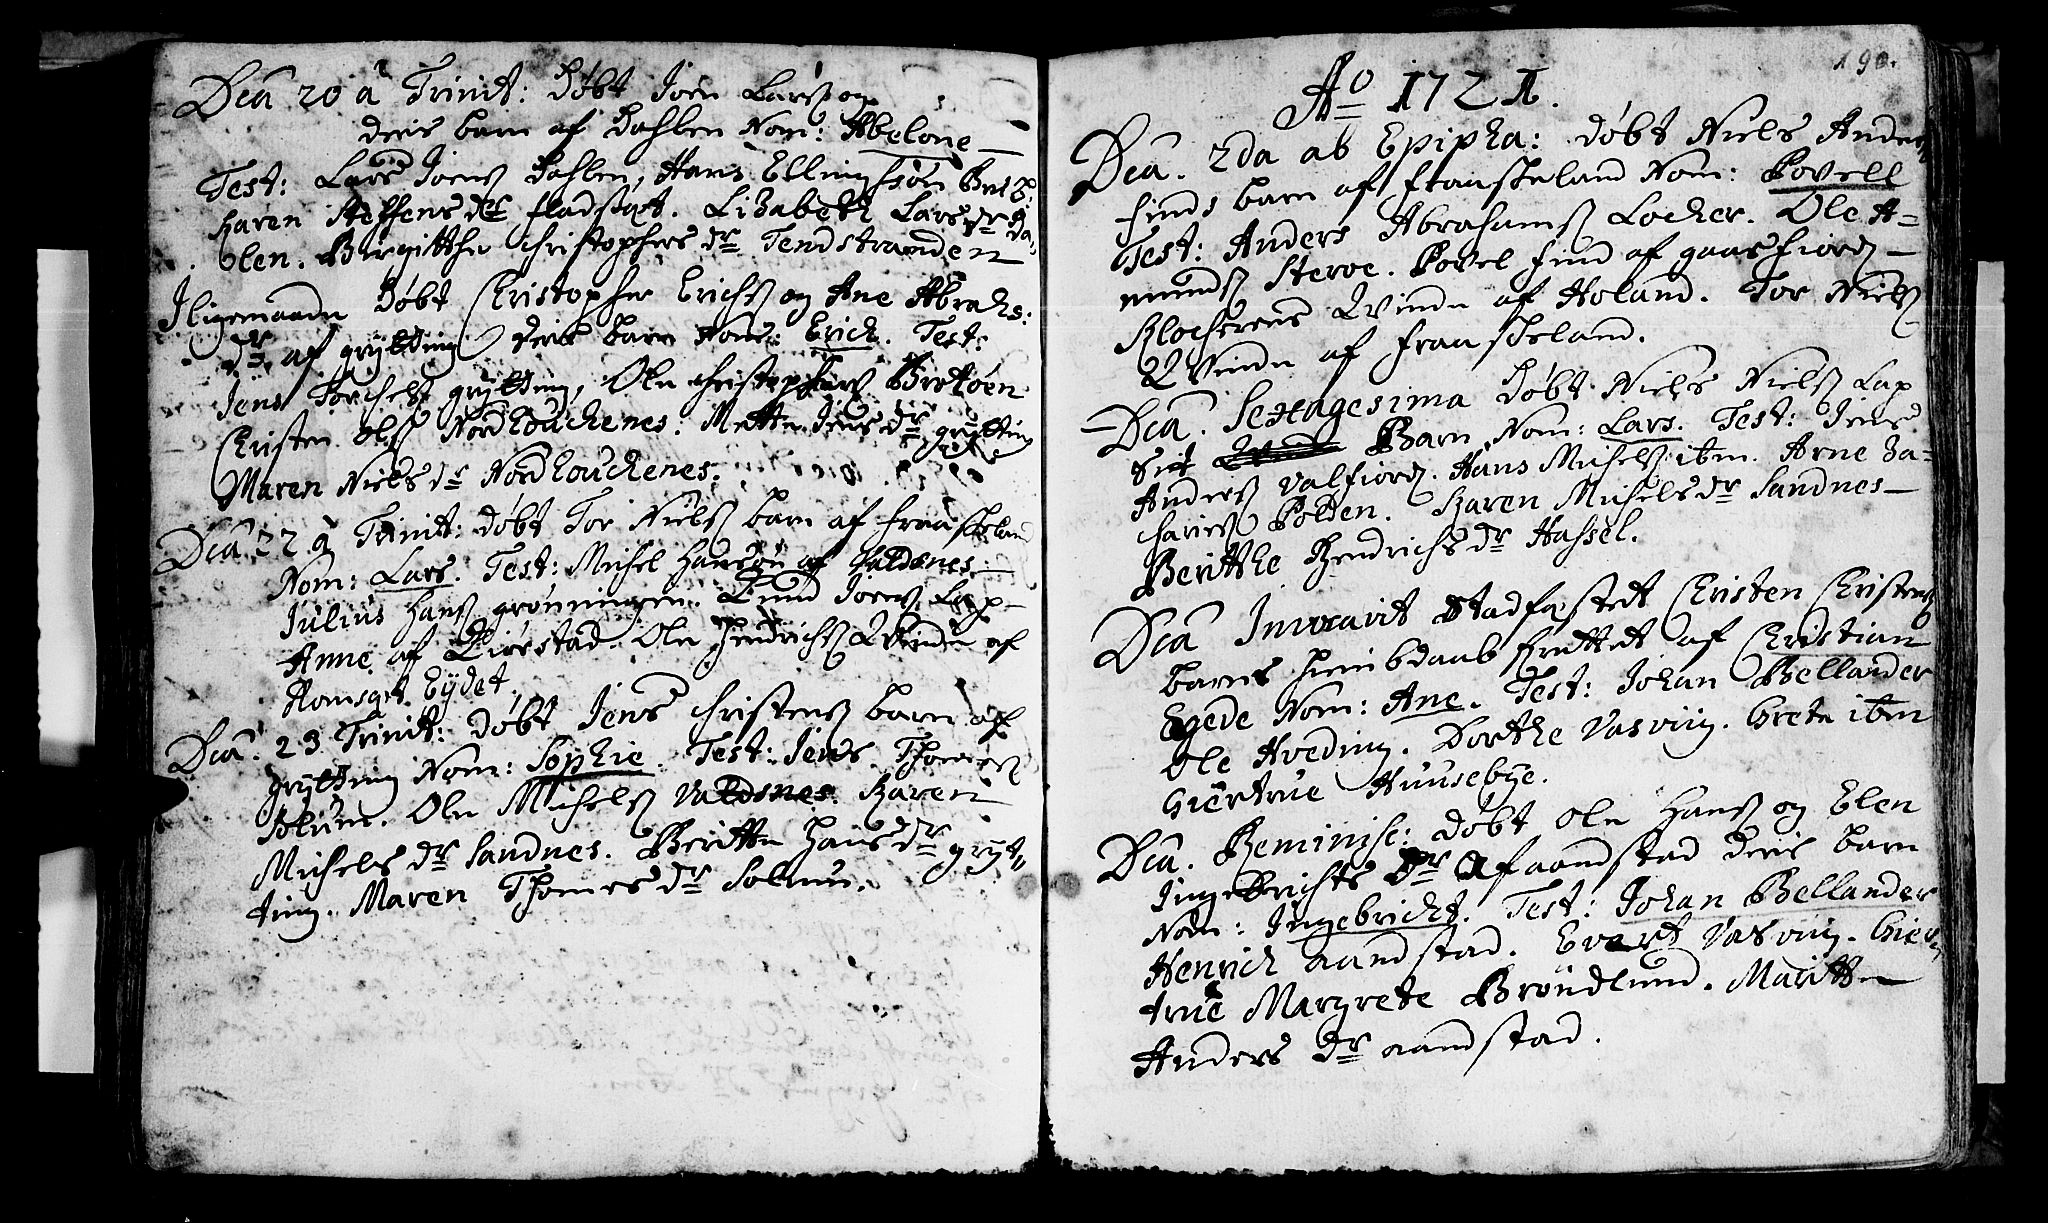 Dca 20 à Trinit: Døbt Joen Larsß og
deris barn af Dahlen Nom: Abelone
Test: Lars Joensß Dahlen, Hans Ellingsøn
Karen Steffens dr fladsæt. Lisabeth Lars dr Da-
len. Birgitthe Christophers dr Tendstranden
Ligemaade Døbt Christopher Erichsß og Ane Abrahs:
dr. af grytting deris barn Nom: Erich. Test:
Jens Torchelsß grytting, Ole Christophersß
Christen Olsß Nordhouchenes. Mette Jens dr grytting
Maren Niels dr Nordhouchenes.
Dca 22 à Trinit: døbt Tor Nielsß barn af fraaskeland
Nom: Lars. Test: Michel Hansøn af Valdsnes.
Julius Hansß grønningen. Joensß Lap
Anne af Ole Hendrichsß Qvinde af
Eydet.
Dca. 23 Trinit: døbt Jens Christensß barn af
grytting Nom: Sophie. Test: Jens Thomesß
Solum. Ole Michelsß Valdsnes. Karen
Michels dr Sandnes. Beritte Hans dr gryt-
ting. Maren Thomes dr Solum.
190.
Ao 1721.
Dca. 2da ab Epipha: døbt Niels Andersß
finds barn af fraaskeland Nom: Povell
Test: Anders Abrahamsß Locher. Ole A-
mundsß Steroe. Povel find af gaasfiord
Klocherens Qvinde af Holand. Tor Nielsß
Qvinde af fraaskeland.
Dca. Sexagesima Døbt Niels Nielsß Lap
Sit Barn Nom: Lars. Test: Jens
Andersß Valfiord. Hans Michelsß ibm. Arne Za-
chariesß Polden. Karen Michels dr Sandnes
Berithe Hendrichs dr Hassel.
Dca Invocavit Stadfæstet Christen Christensß
barns Hiembdaab forrettet af Christian
Egede Nom: Ane. Test: Johan Bellander
Ole Hveding. Dorthe Vasvig. Grete ibm
Giertrue Huusebye.
Dca. Reminisc: døbt Ole Hansß og Elen
Ingebrichts Dr Af aandstad deris barn
Nom: Ingebricht. Test: Johan Bellander
Henrich aandstad. Evert Vasvig. Gier-
true Margrete Brøndlund. Maritte
Anders dr aandstad.